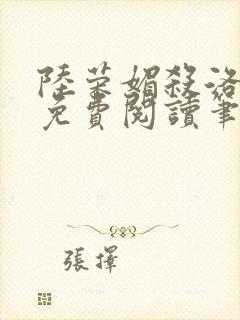 陸荣媚殺洛
免費閱讀筆
張擇